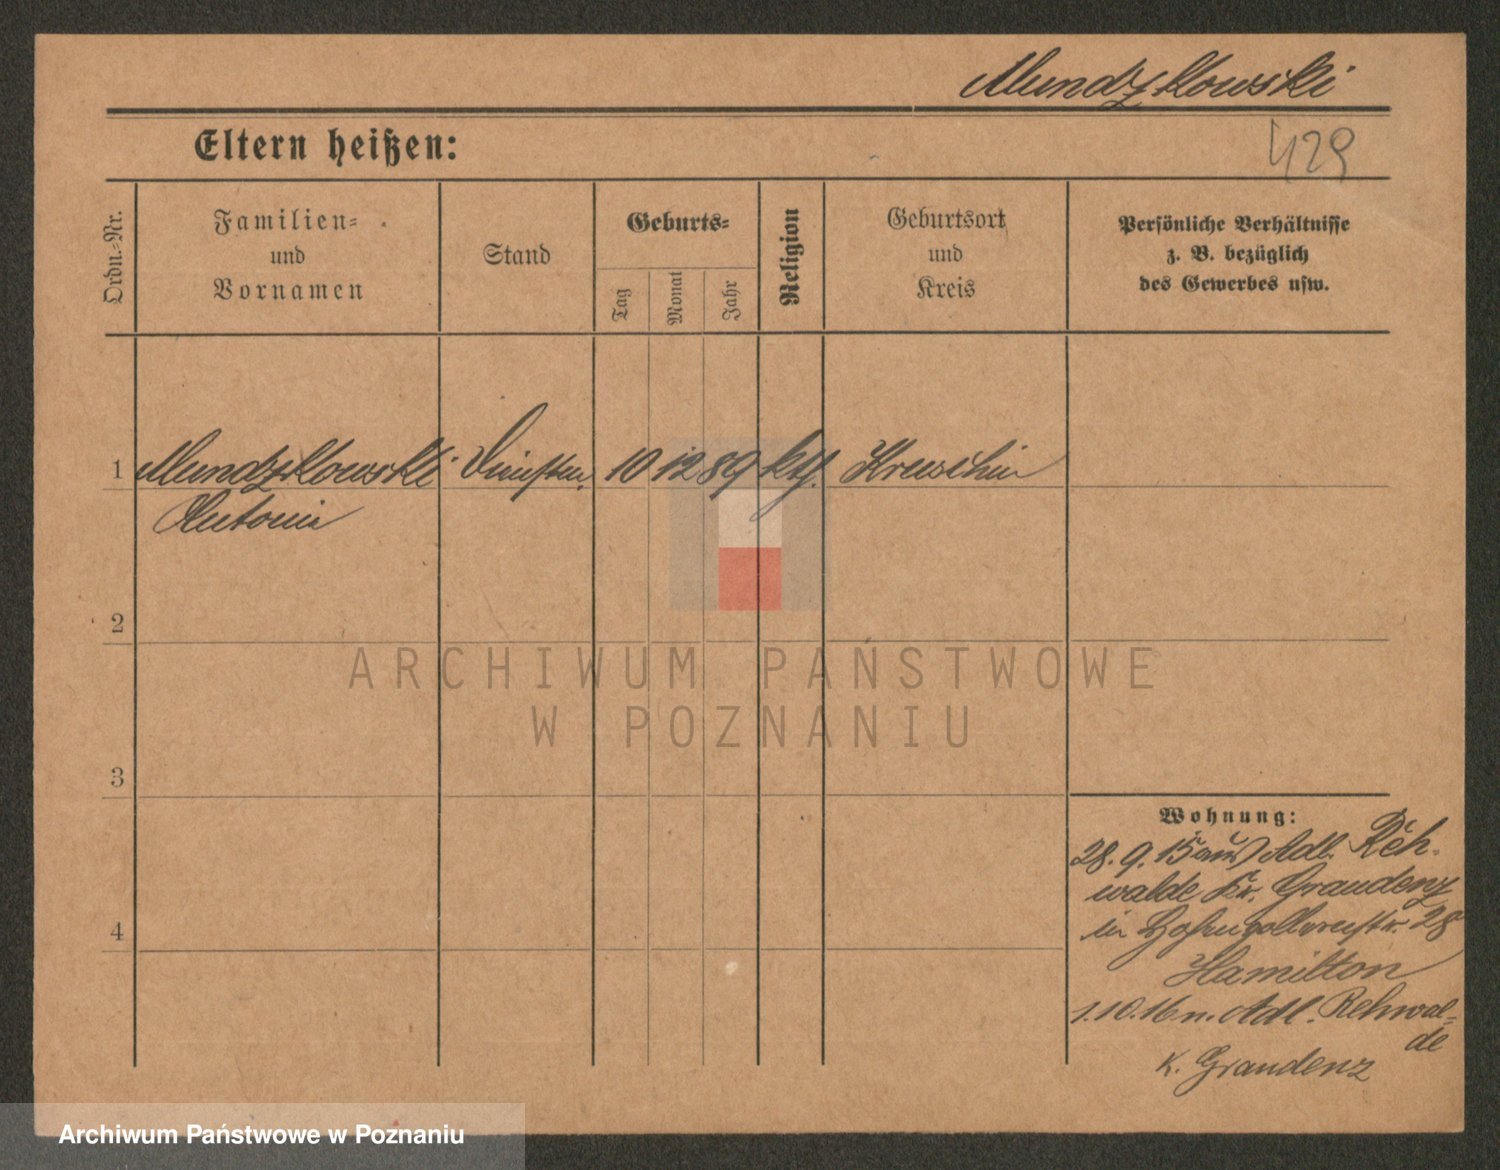 Mundzkowski
429
Eltern heißen:
Ordn.=Nr.
Familien=
und
Vornamen
Stand
Geburts=
Tag
Monat
Jahr
Religion
Geburtsort
und
Kreis
Persönliche Verhältnisse
z. B. bezüglich
des Gewerbes usw.
1 Mundzkowski 10 12 89 kth. Kruschin
Antonie
2
3
4
Wohnung:
28. 9. 15 aus Adl. Reh-
walde Kr. Graudenz
in Hohenzollernstr. 28
Hamilton
1.10.16 n. Adl. Rehwal=
de
K. Graudenz
ARCHIWUM PAŃSTWOWE
W POZNANIU
Archiwum Państwowe w Poznaniu